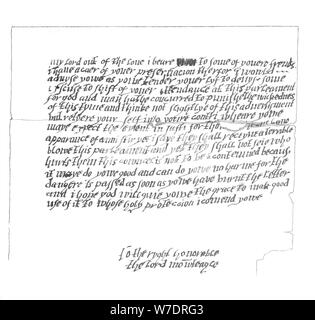 my lord out of the love i beare to some of youere frends
i have a caer of youer preseruacion therfor i would
aduyse yowe as yowe tender youer lyf to deuys some
excuse to shift of youer attendance at this parleament
for god and man hathe concurred to punishe the wickednes
of this tyme and thinke not slightlye of this aduertisment
but youre self into youre contri wheare yowe
maye expect the euent in safti for thowghe theare be no
apparance of anni stir yet i saye they shall receyue a terrible
blowe this parleament and yet they shall not seie who
hurts them this cowncel is not to be contemned becaus
it maye do yowe good and can do yowe no harme for the
dangere is passed as soon as yowe have burnt the letter
and i hope god will giue yowe the grace to mak good
use of it to whose holy proteccion i comend yowe
to the right honorable
the lord mowteagle
alamy
W7DRG3